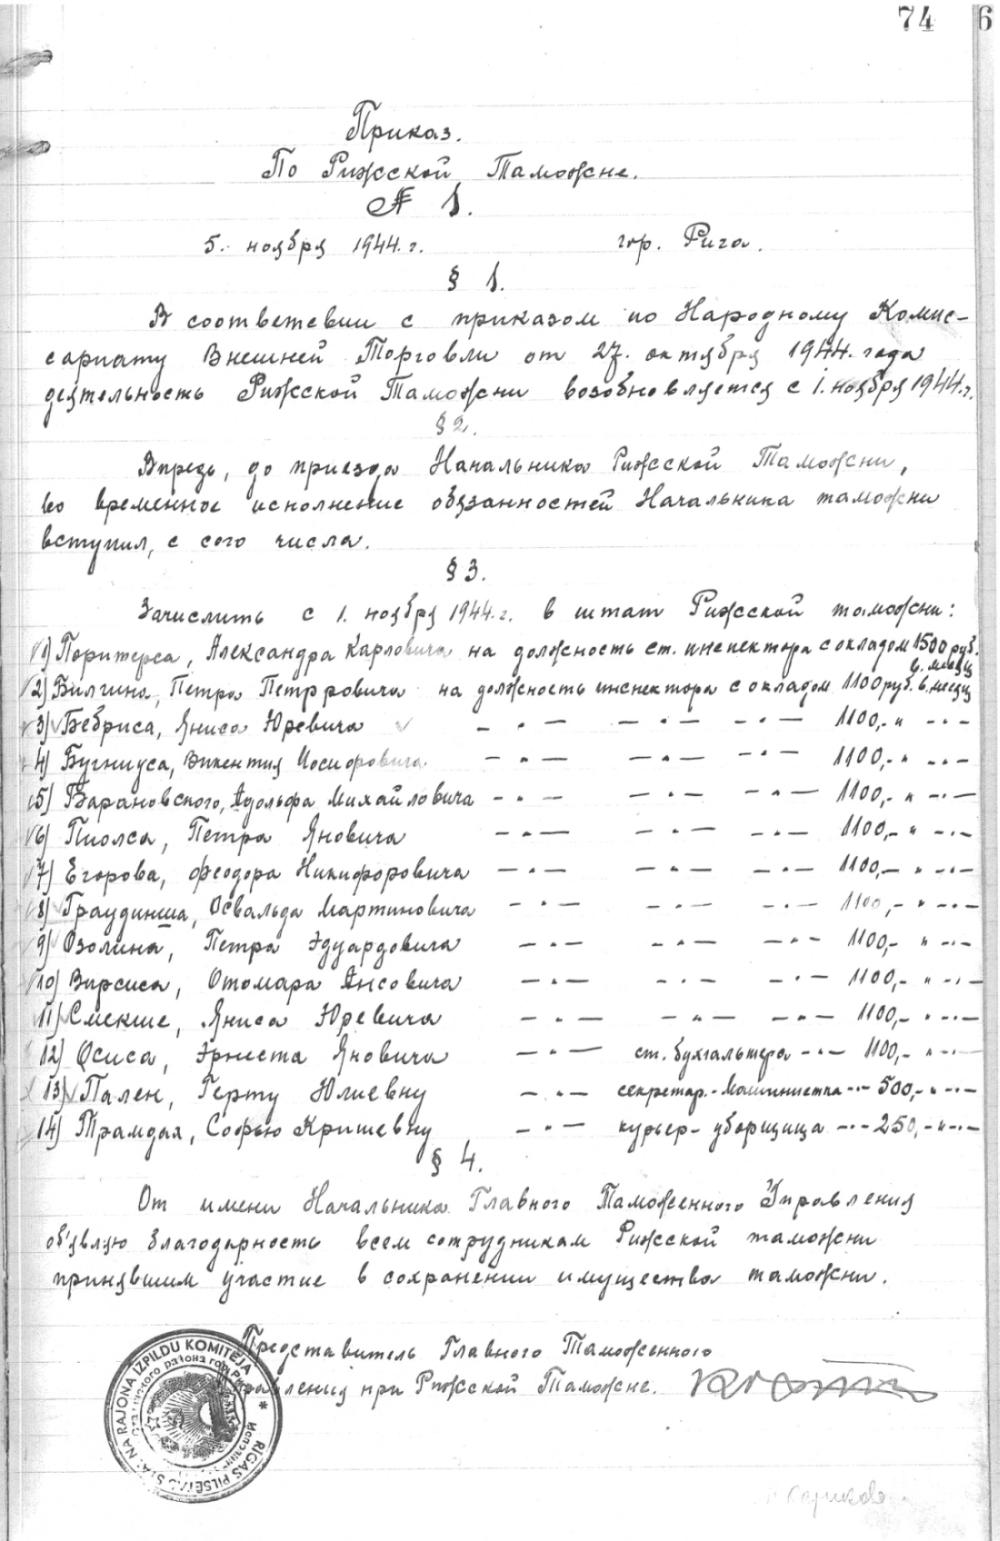 74 6
Приказ.
По Рижской Таможне.
№ 1.
5. ноября 1944. г. гор. Рига.
§ 1.
В соответсвии с приказом по Народному Комис-
сариату Внешней Торговли от 27. октября 1944. года
деятельность Рижской Таможни возобновляется с 1. ноября 1944. г.
§ 2.
Впредь, до приезда Начальника Рижской Таможни,
во временное исполнение обязанностей Начальника таможни
вступил, с сего числа.
§ 3.
Зачислить с 1. ноября 1944. г. в штат Рижской таможни:
1) Поритерса, Александра Карловича на должность ст. инспектора с окладом 1500 руб.
в. месяц
2) Билгина, Петра Петрровича на должность инспектора с окладом 1100 руб. в. месяц
3) Бебриса, Яниса Юревича - " - - " - - " - 1100,- " - " -
4) Бугниуса, Викентия Иосифровича - " - - " - - " - 1100,- " - " -
5) Барановского, Адольфа Михайловича - " - - " - - " - 1100,- " - " -
6) Пиолса, Петра Яновича - " - - " - - " - 1100,- " - " -
7) Егорова, Феодора Никифоровича - " - - " - - " - 1100,- " - " -
8) Граудинша, Освальда Мартиновича - " - - " - - " - 1100,- " - " -
9) Озолина, Петра Эдуардовича - " - - " - - " - 1100,- " - " -
10) Вирсиса, Отомара Ансовича - " - - " - - " - 1100,- " - " -
11) Смекше, Яниса Юревича - " - - " - - " - 1100,- " - " -
12) Осиса, Эрнеста Яновича - " - ст. бухгальтера - " - 1100,- " - " -
13) Пален, Герту Юлиевну - " - секретар.- машинистка - " - 500,- " - " -
14) Трамдах, Софью Кришевну - " - курьер- уборщица - " - 250,- " - " -
§ 4.
От имени Начальника Главного Таможенного Управления
об'являю благодарность всем сотрудникам Рижской таможни
принявшим участие в сохранении имущества таможни.
Представитель Главного Таможенного
равления при Рижской Таможне.
NA RAJONA IZPILDU KOMITEJA * RIGAS PILSETAS STA